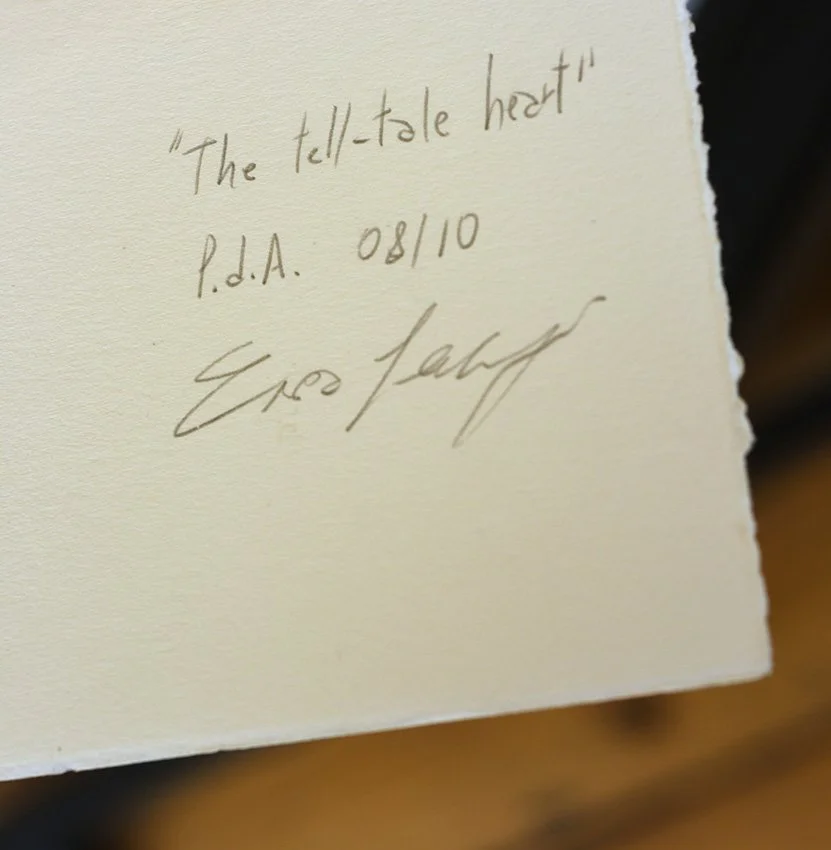 "The tell-tale heart"
P.d.A. 08/10